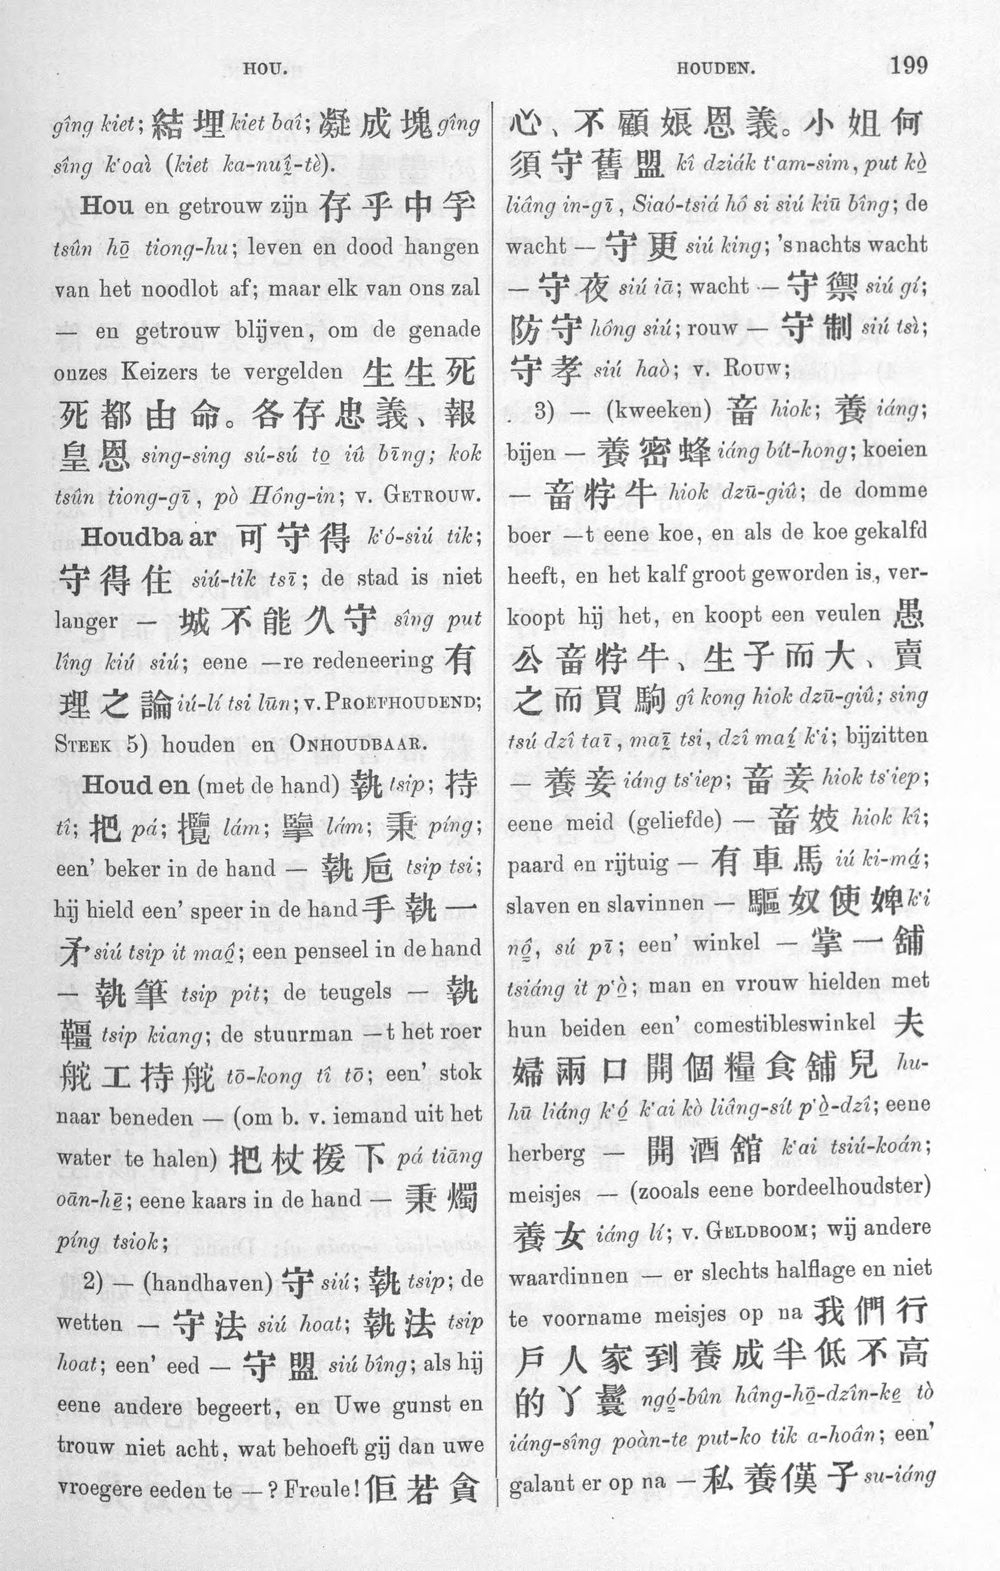 HOU.
HOUDEN.
199
gîng kiet; 結埋 kiet baî; 凝成塊 gîng
sîng k‘oaì (kiet ka-nuî-tè).
Hou en getrouw zijn 存乎中孚
tsûn hō tiong-hu; leven en dood hangen
van het noodlot af; maar elk van ons zal
— en getrouw blijven, om de genade
onzes Keizers te vergelden 生生死
死都由命。各存忠義、報
皇恩 sing-sing sú-sú to iû bīng; kok
tsûn tiong-gī, pò Hông-in; v. GETROUW.
Houdbaar 可守得 k‘ó-siú tik;
守得住 siú-tik tsī; de stad is niet
langer — 城不能久守 sîng put
lîng kiú siú; eene —re redeneering 有
理之論 iú-lí tsi lūn; v. PROEFHOUDEND;
STEEK 5) houden en ONHOUDBAAR.
Houden (met de hand) 執 tsip; 持
tî; 把 pá; 攬 lám; 擥 lám; 秉 píng;
een’ beker in de hand — 執卮 tsip tsi;
hij hield een’ speer in de hand 手執一
矛 siú tsip it maô; een penseel in de hand
— 執筆 tsip pit; de teugels — 執
韁 tsip kiang; de stuurman —t het roer
舵工持舵 tō-kong tî tō; een’ stok
naar beneden — (om b. v. iemand uit het
water te halen) 把杖援下 pá tiāng
oān-hē; eene kaars in de hand — 秉燭
píng tsiok;
2) — (handhaven) 守 siú; 執 tsip; de
wetten — 守法 siú hoat; 執法 tsip
hoat; een’ eed — 守盟 siú bîng; als hij
eene andere begeert, en Uwe gunst en
trouw niet acht, wat behoeft gij dan uwe
vroegere eeden te — ? Freule! 佢若貪
心、不顧娘恩義。小姐何
須守舊盟 kî dziák t‘am-sim, put kò
liâng in-gī, Siaó-tsiá hô si siú kiū bîng; de
wacht — 守更 siú king; ’s nachts wacht
— 守夜 siú iā; wacht — 守禦 siú gí;
防守 hông siú; rouw — 守制 siú tsì;
守孝 siú haò; v. ROUW;
3) — (kweeken) 畜 hiok; 養 iáng;
bijen — 養密蜂 iáng bít-hong; koeien
— 畜牸牛 hiok dzū-giû; de domme
boer —t eene koe, en als de koe gekalfd
heeft, en het kalf groot geworden is, ver-
koopt hij het, en koopt een veulen 愚
公畜牸牛、生子而大、賣
之而買駒 gî kong hiok dzū-giû; sing
tsú dzî taī, maī tsi, dzî maí k‘i; bijzitten
— 養妾 iáng ts‘iep; 畜妾 hiok ts‘iep;
eene meid (geliefde) — 畜妓 hiok kî;
paard en rijtuig — 有車馬 iú ki-má;
slaven en slavinnen — 驅奴使婢 k‘i
nô, sú pī; een’ winkel — 掌一舖
tsiáng it p‘ò; man en vrouw hielden met
hun beiden een’ comestibleswinkel 夫
婦兩口開個糧食舖兒 hu-
hū liáng k‘ó k‘ai kò liâng-sít p‘ò-dzî; eene
herberg — 開酒舘 k‘ai tsiú-koán;
meisjes — (zooals eene bordeelhoudster)
養女 iáng lí; v. GELDBOOM; wij andere
waardinnen — er slechts halflage en niet
te voorname meisjes op na 我們行
戶人家到養成半低不高
的丫鬟 ngó-bûn hâng-hō-dzîn-ke tò
iáng-sîng poàn-te put-ko tik a-hoân; een’
galant er op na — 私養漢子 su-iáng